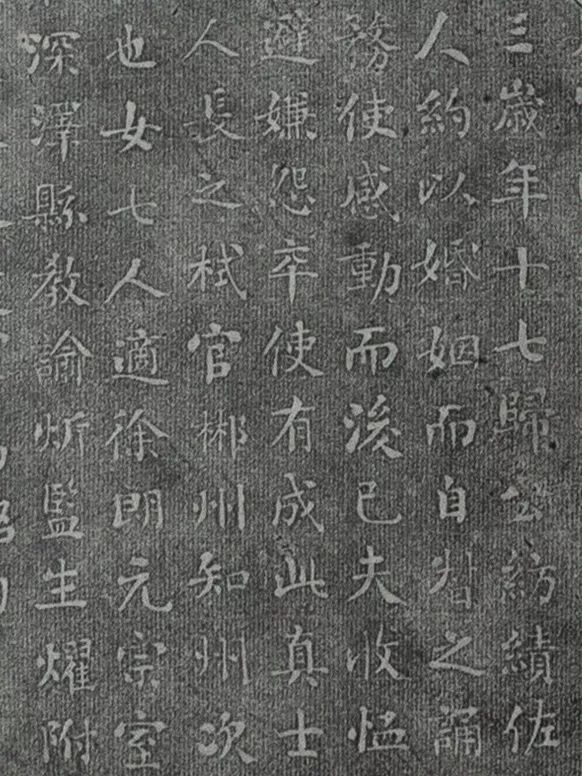 三歲年十七歸公紡績佐
人約以婚姻而自之誦
務使感動而後已夫收恤
避嫌怨卒使有成此真士
人長之栻官郴州知州次
也女七人適徐朗元宗室
深澤縣教諭炘監生燿附